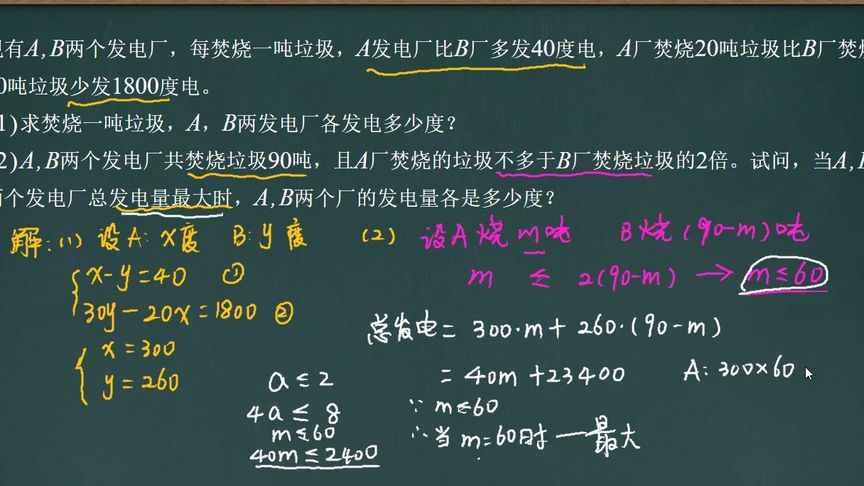 有A,B两个发电厂，每焚烧一吨垃圾，A发电厂比B厂多发40度电，A厂焚烧20吨垃圾比B厂焚烧
0吨垃圾少发1800度电。
1)求焚烧一吨垃圾，A，B两发电厂各发电多少度？
2)A,B两个发电厂共焚烧垃圾90吨，且A厂焚烧的垃圾不多于B厂焚烧垃圾的2倍。试问，当A,B
个发电厂总发电量最大时，A,B两个厂的发电量各是多少度？
解:(1) 设A: x度 B: y度
x-y=40 ①
30y-20x=1800 ②
x=300
y=260
(2) 设A烧m吨 B烧(90-m)吨
m ≤ 2(90-m) → m≤60
总发电= 300·m+ 260·(90-m)
= 40m+23400
∵ m≤60
∴当m=60时 一最大
a≤2
4a≤8
m≤60
40m≤2400
A: 300×60